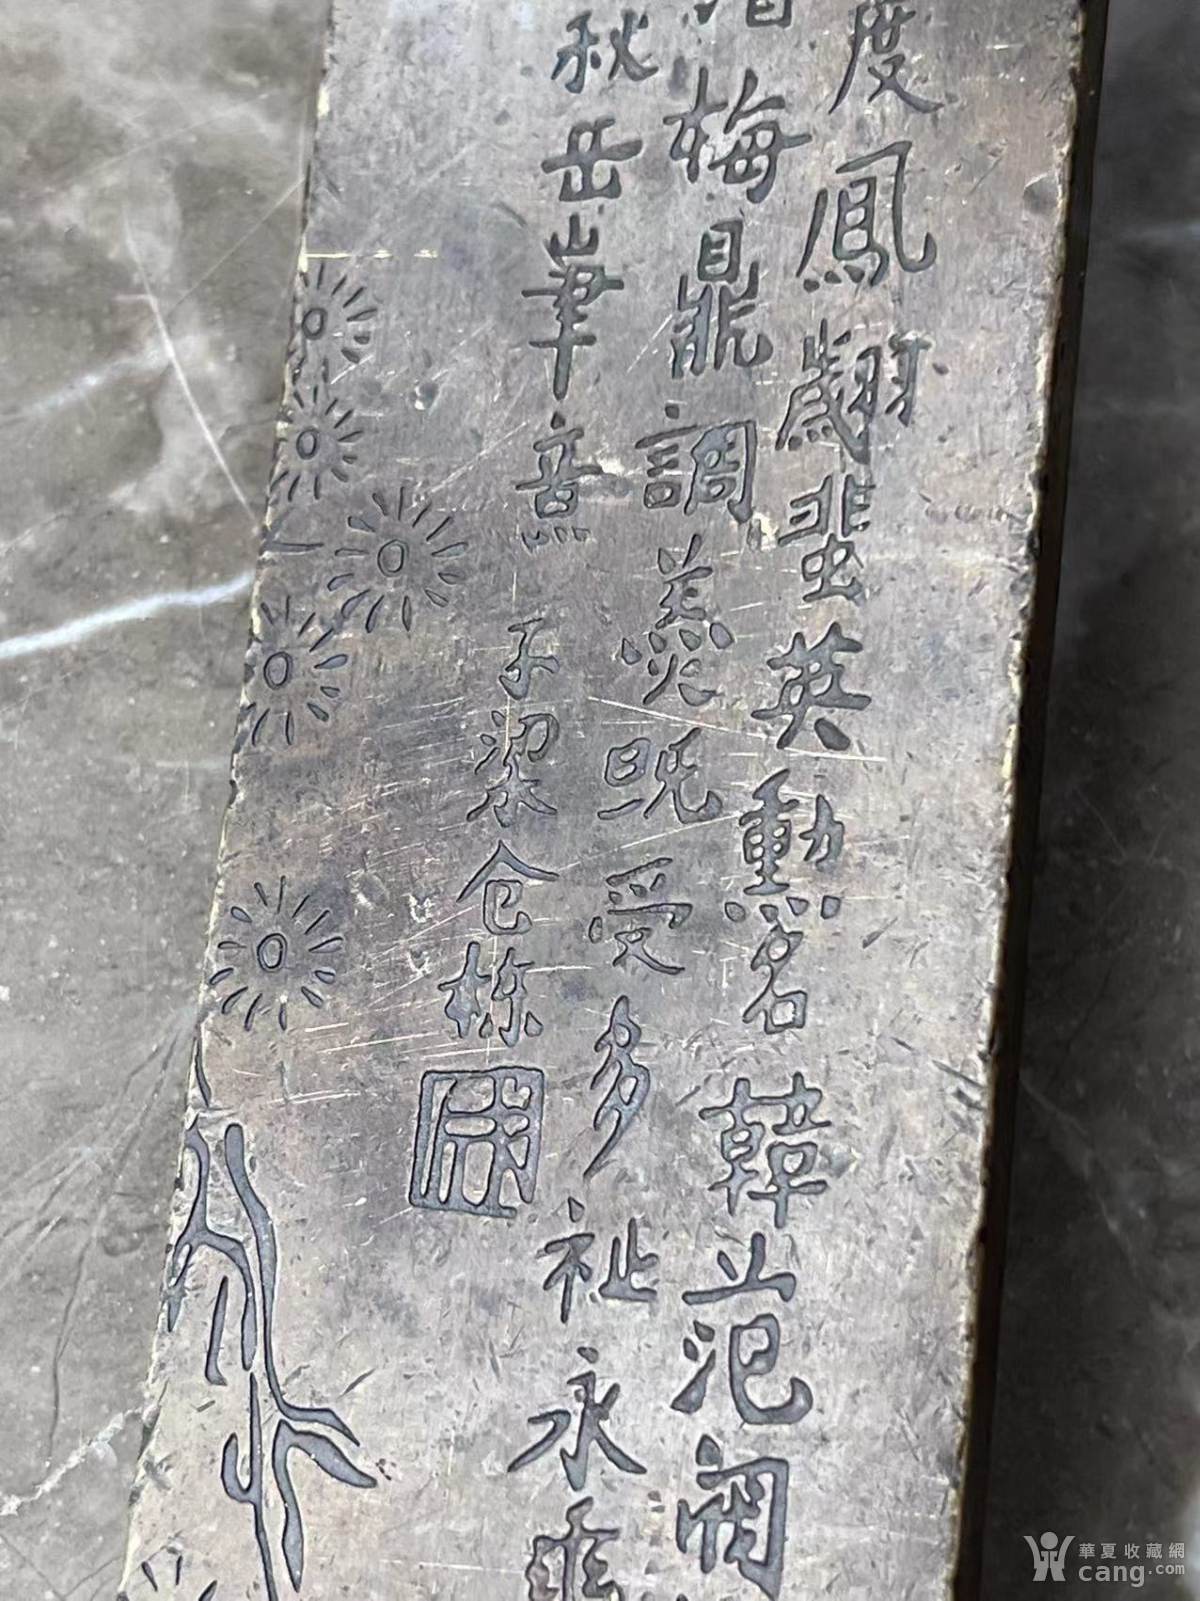 度鳳翽蜚英勳名韓范
梅鼎調羹既受多祉永
秋岳峯意 子梁仓栋
華夏收藏網
cang.com